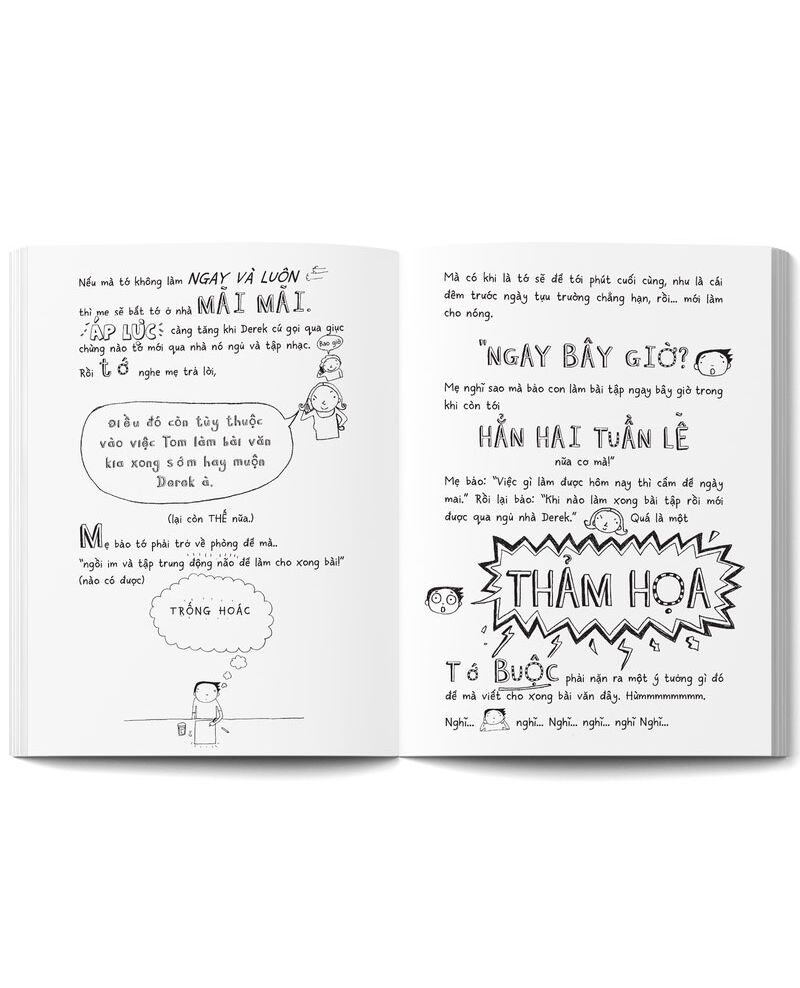 Nếu mà tớ không làm NGAY VÀ LUÔN
thì mẹ sẽ bắt tớ ở nhà MÃI MÃI.
ÁP LỰC càng tăng khi Derek cứ gọi qua giục
chừng nào tớ mới qua nhà nó ngủ và tập nhạc.
Bao giờ
Rồi tớ nghe mẹ trả lời,
Điều đó còn tùy thuộc
vào việc Tom làm bài văn
kia xong sớm hay muộn
Derek à.
(lại còn THẾ nữa.)
Mẹ bảo tớ phải trở về phòng để mà..
“ngồi im và tập trung động não để làm cho xong bài!”
(nào có được)
TRỐNG HOÁC
Mà có khi là tớ sẽ để tới phút cuối cùng, như là cái
đêm trước ngày tựu trường chẳng hạn, rồi... mới làm
cho nóng.
"NGAY BÂY GIỜ?
Mẹ nghĩ sao mà bảo con làm bài tập ngay bây giờ trong
khi còn tới
HẲN HAI TUẦN LỄ
nữa cơ mà!”
Mẹ bảo: “Việc gì làm được hôm nay thì cấm để ngày
mai.” Rồi lại bảo: “Khi nào làm xong bài tập rồi mới
được qua ngủ nhà Derek.” Quả là một
THẢM HỌA
Tớ BUỘC phải nặn ra một ý tưởng gì đó
để mà viết cho xong bài văn đây. Hừmmmmmmmm.
Nghĩ... nghĩ... Nghĩ... nghĩ... nghĩ Nghĩ...